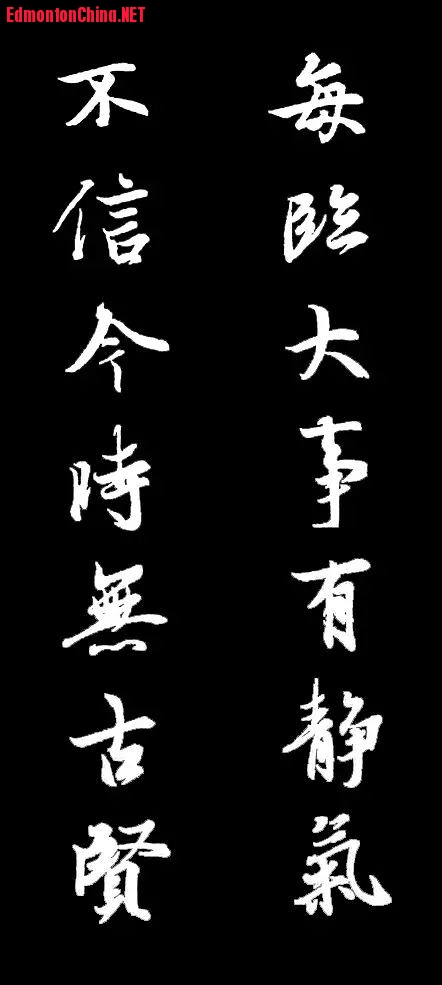 EdmontonChina.NET
每臨大事有静氣
不信今時無古賢